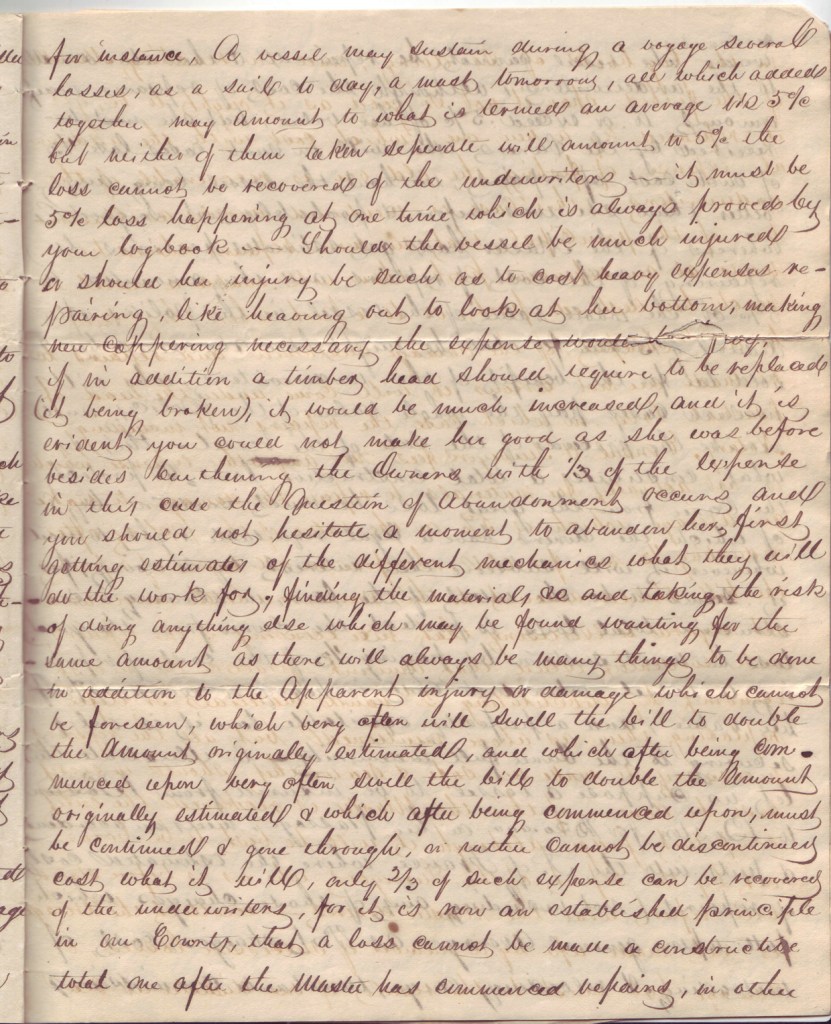 for instance, A vessel may sustain during a voyage several
losses, as a sail to day, a mast tomorrow, all which added
together may amount to what is termed an average viz 5%
but neither of them taken seperate will amount to 5% the
loss cannot be recovered of the underwriters — it must be
5% loss happening at one time which is always proved by
your logbook — Should the vessel be much injured
or should her injury be such as to cost heavy expenses re-
pairing, like heaving out to look at her bottom, making
new coppering necessary the expense would
if in addition a timber head should require to be replaced
(it being broken), it would be much increased, and it is
evident you could not make her good as she was before
besides burthening the Owners with 1/3 of the expense
in this case the Question of Abandonment occurs and
you should not hesitate a moment to abandon her, first
getting estimates of the different mechanics what they will
do the work for, finding the materials &c and taking the risk
of doing anything else which may be found wanting for the
same amount as there will always be many things to be done
in addition to the Apparent injury or damage which cannot
be foreseen, which very often will swell the bill to double
the Amount originally estimated, and which after being com-
menced upon very often swell the bill to double the Amount
originally estimated & which after being commenced upon, must
be continued & gone through, or rather cannot be discontinued
cost what it will, only 2/3 of such expense can be recovered
of the underwriters, for it is now an established principle
in our Courts, that a loss cannot be made a constructive
total one after the Master has commenced repairs, in other